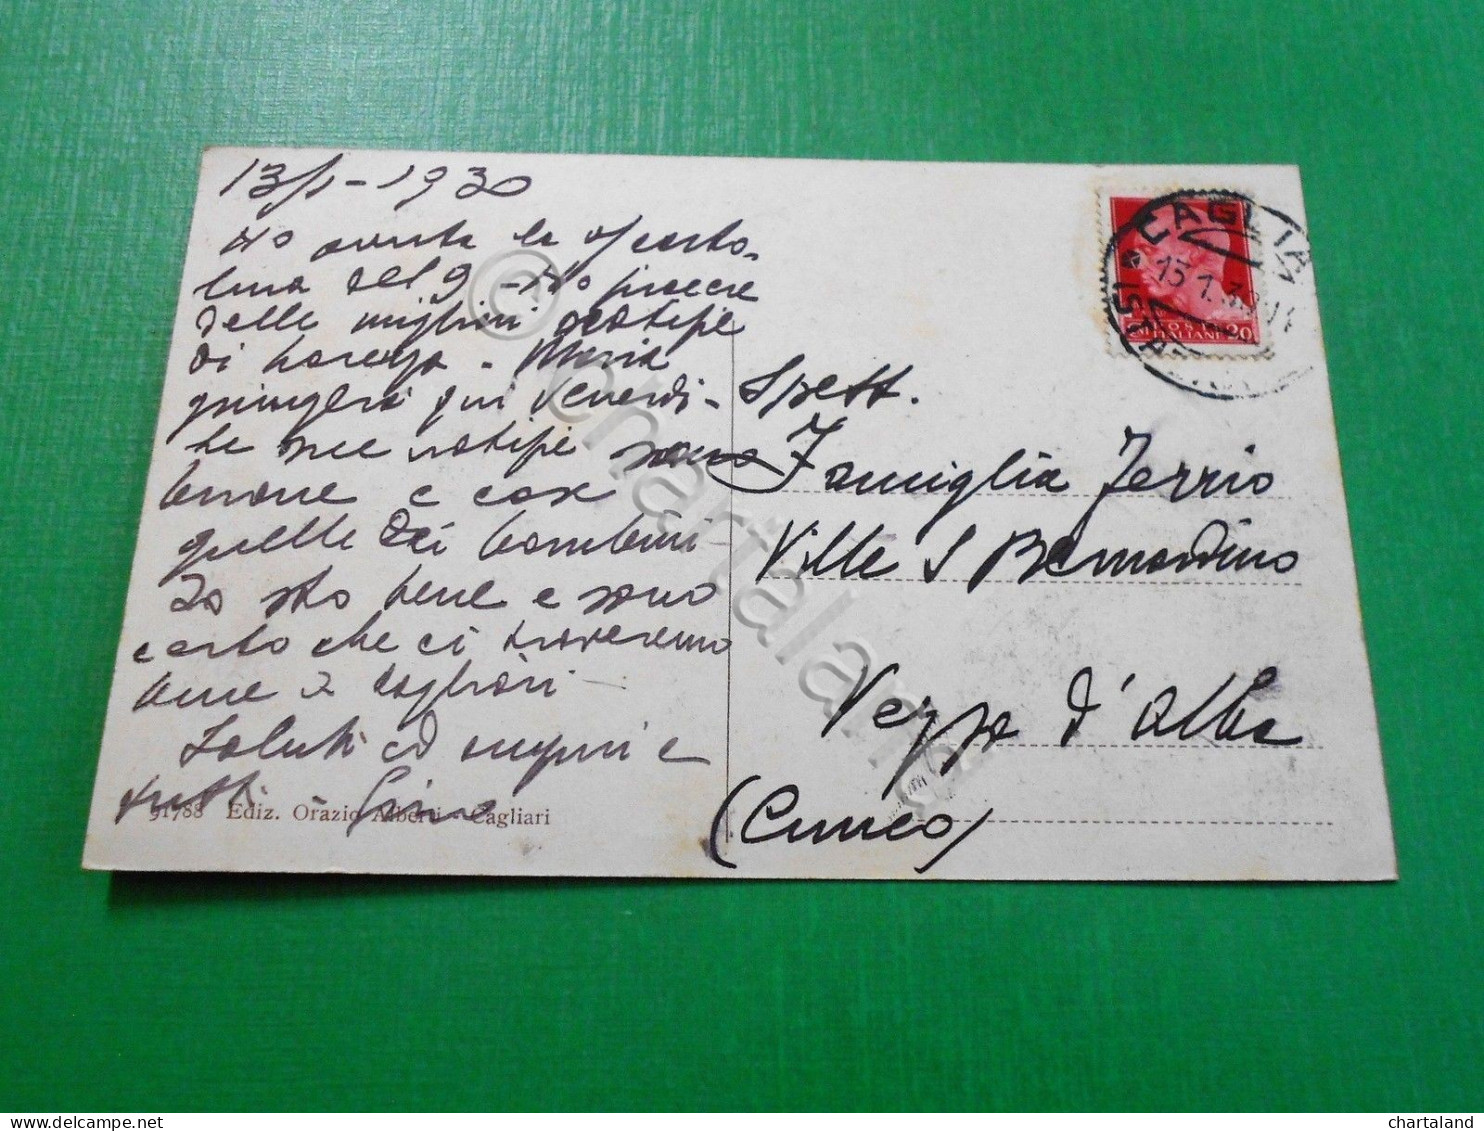 13/1-1930
Ho avuta la / carto-
lina del 9 - Ho piacere
delle migliori notizie
di - Maria
giungerà qui Venerdì -
le sue notizie sono
buone e così
quelle dei bambini
Io sto bene e sono
certo che ci troveremo
bene a Cagliari
Saluti ed auguri a
tutti - Gino
91788 Ediz. Orazio Alberti - Cagliari
CAGLIARI
13.1.3
POSTE ITALIANE 20
Spett.
Famiglia Ferrio
Ville S Bernardino
Vezza d'Alba
(Cuneo)
© chartaland
chartaland